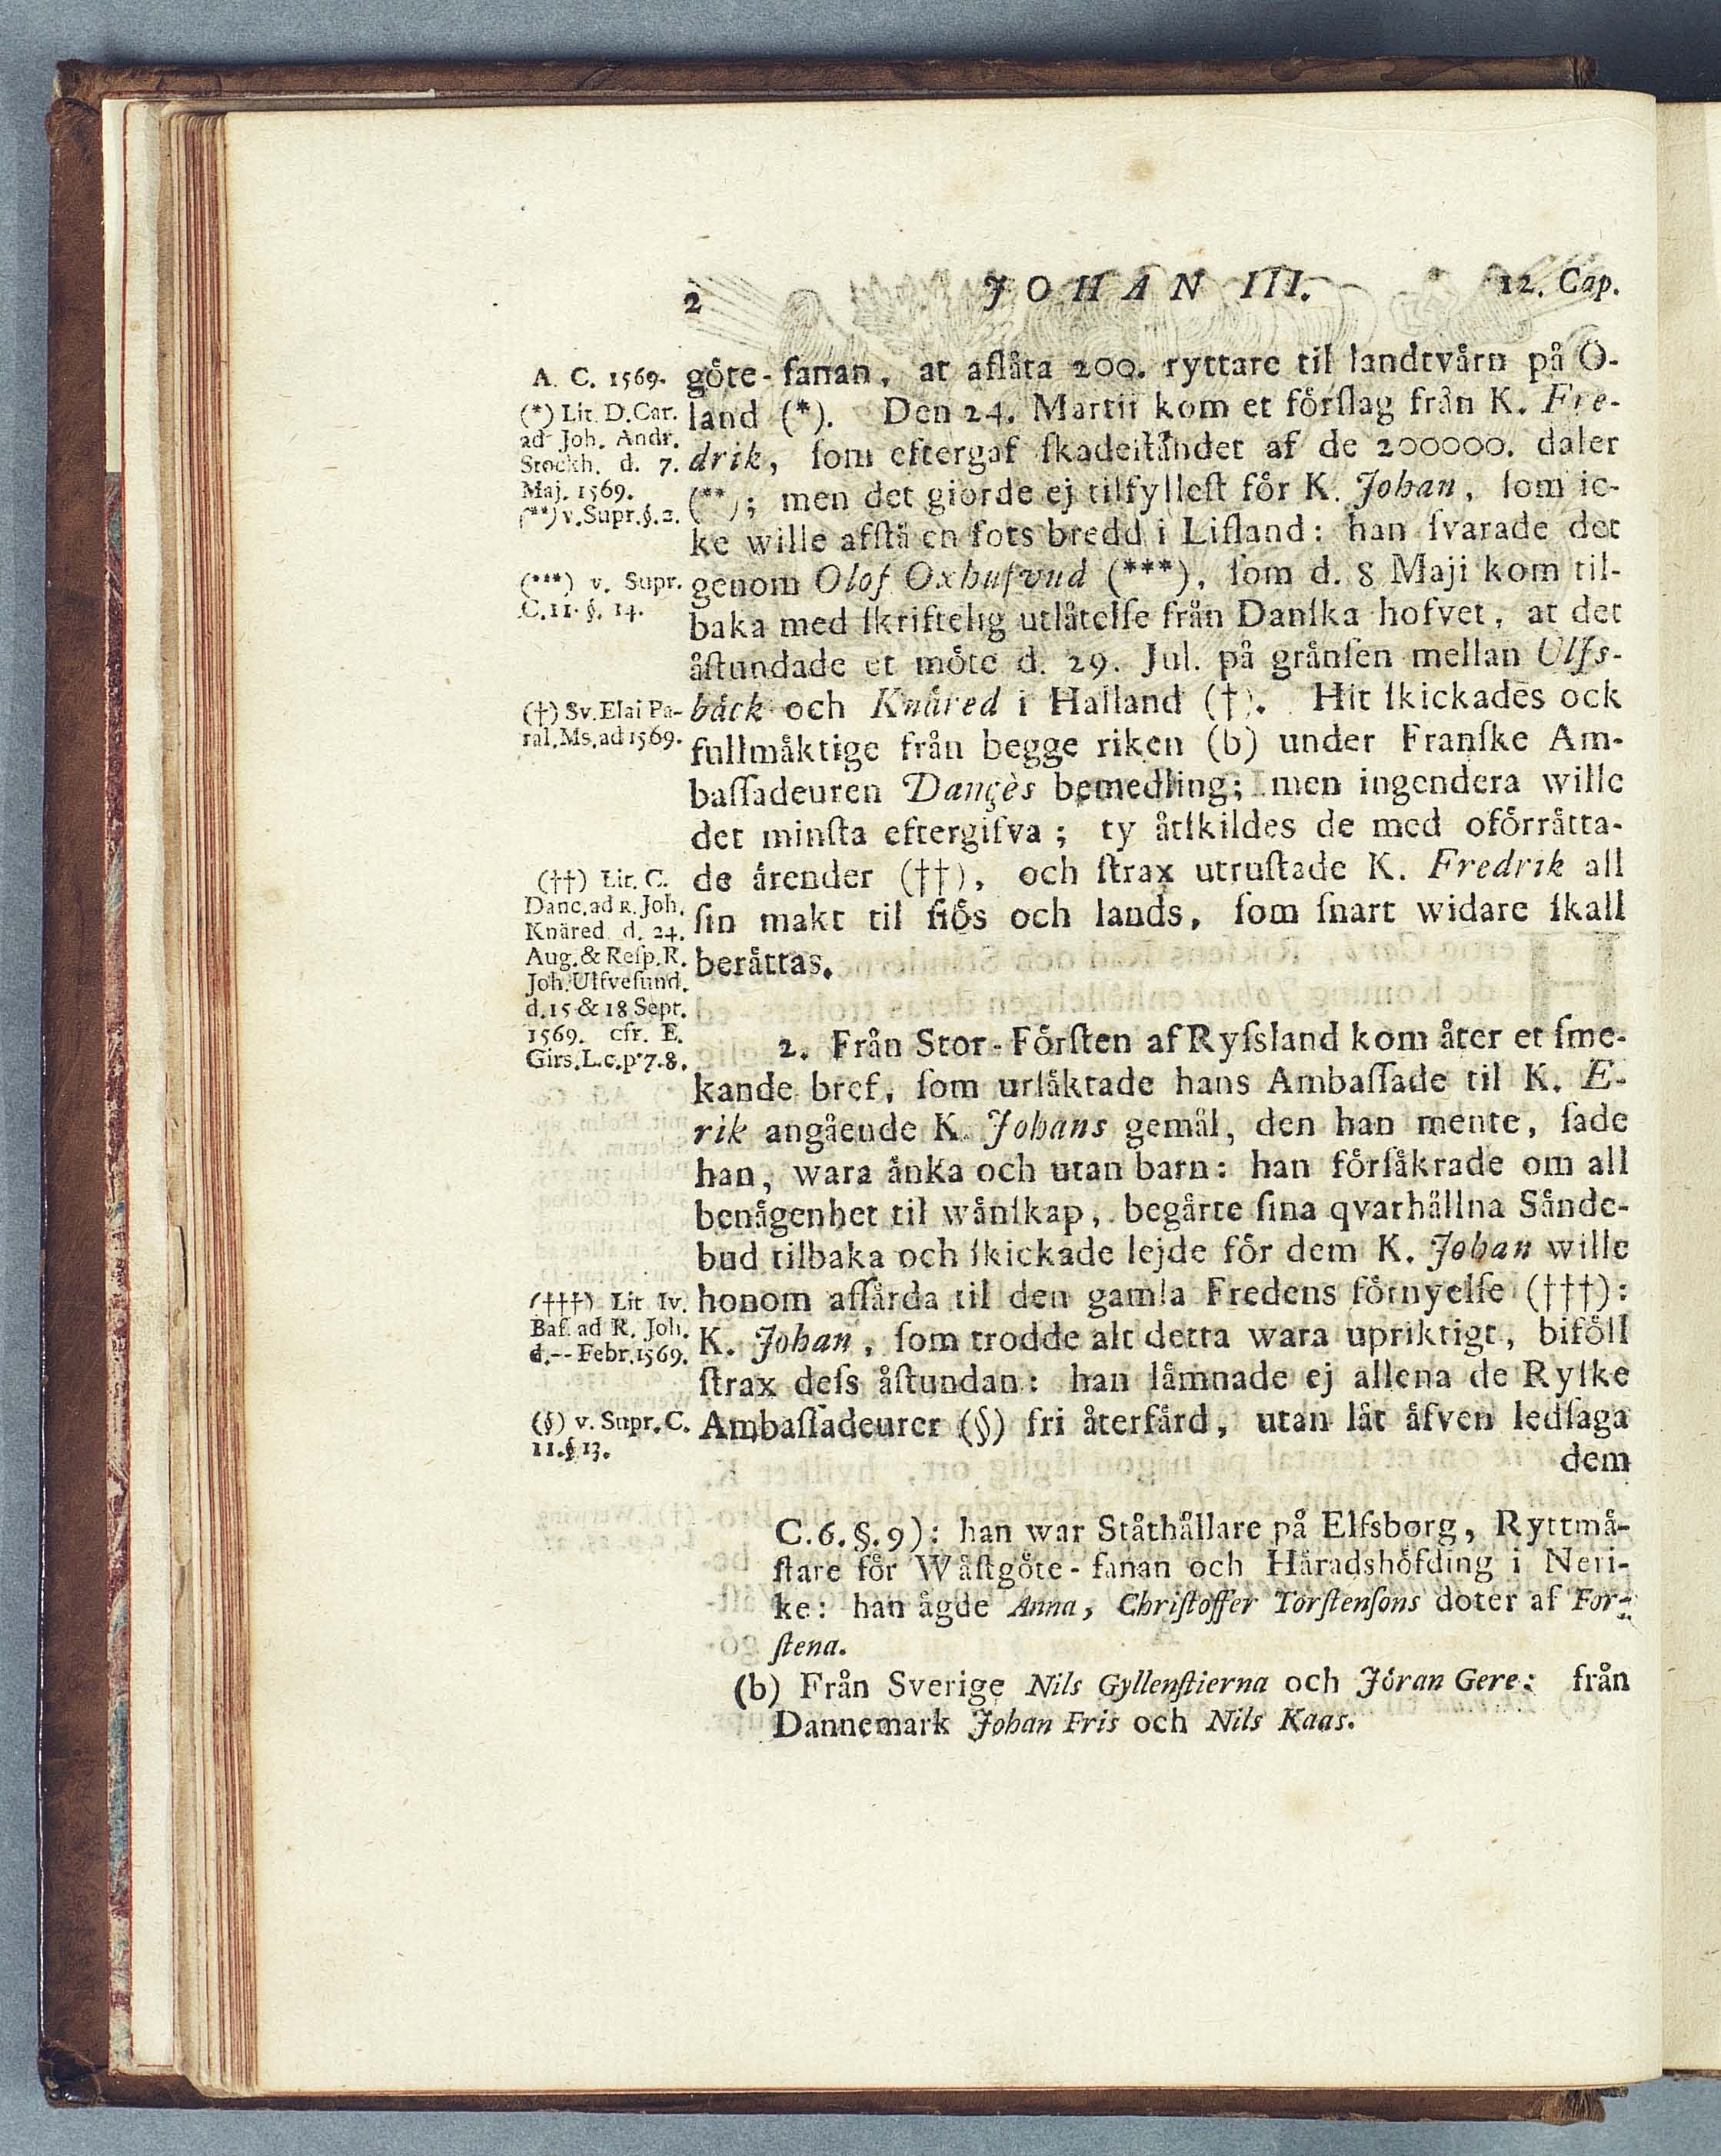 2 JOHAN III. 12. Cap.
A. C. 1569.
(*) Lit. D. Car.
ad Joh. Andr.
Stockh. d. 7.
Maj. 1569.
(**) v. Supr. §. 2.
(***) v. Supr.
C. 11. §. 14.
(†) Sv. Elai Pa-
ral. Ms. ad 1569.
(††) Lit. C.
Danc. ad R. Joh.
Knäred d. 24.
Aug. & Reſp. R.
Joh. Ulfveſund.
d. 15 & 18 Sept.
1569. cfr. E.
Girs. L. c. p. 7. 8.
(†††) Lit Iv.
Baſ. ad R. Joh.
d. -- Febr. 1569.
(§) v. Supr. C.
11. § 13.
göte-fanan, at aflåta 200. ryttare til landtvärn på Ö-
land (*). Den 24. Martii kom et förſlag från K. Fre-
drik, ſom eftergaf ſkadeſtåndet af de 200000. daler
(**); men det giorde ej tilfylleſt för K. Johan, ſom ic-
ke wille afſtå en fots bredd i Lifland: han ſvarade det
genom Olof Oxhufvud (***), ſom d. 8 Maji kom til-
baka med ſkriftelig utlåtelſe från Danſka hofvet, at det
åſtundade et möte d. 29. Jul. på gränſen mellan Ulfs-
bäck och Knäred i Halland (†). Hit ſkickades ock
fullmäktige från begge riken (b) under Franſke Am-
baſſadeuren Dançès bemedling; men ingendera wille
det minſta eftergifva; ty åtſkildes de med oförrätta-
de ärender (††), och ſtrax utruſtade K. Fredrik all
ſin makt til ſiös och lands, ſom ſnart widare ſkall
berättas.
2. Från Stor-Förſten af Ryſsland kom åter et ſme-
kande bref, ſom urſäktade hans Ambaſſade til K. E-
rik angående K. Johans gemål, den han mente, ſade
han, wara änka och utan barn: han förſäkrade om all
benägenhet til wänſkap, begärte ſina qvarhållna Sände-
bud tilbaka och ſkickade lejde för dem K. Johan wille
honom affärda til den gamla Fredens förnyelſe (†††):
K. Johan, ſom trodde alt detta wara upriktigt, biföll
ſtrax deſs åſtundan: han lämnade ej allena de Ryſke
Ambaſſadeurer (§) fri återfärd, utan lät äfven ledſaga
dem
C. 6. §. 9): han war Ståthållare på Elfsborg, Ryttmä-
ſtare för Wäſtgöte-fanan och Häradshöfding i Neri-
ke: han ägde Anna, Chriſtoffer Torſtenſons doter af For-
ſtena.
(b) Från Sverige Nils Gyllenſtierna och Jöran Gere: från
Dannemark Johan Fris och Nils Kaas.